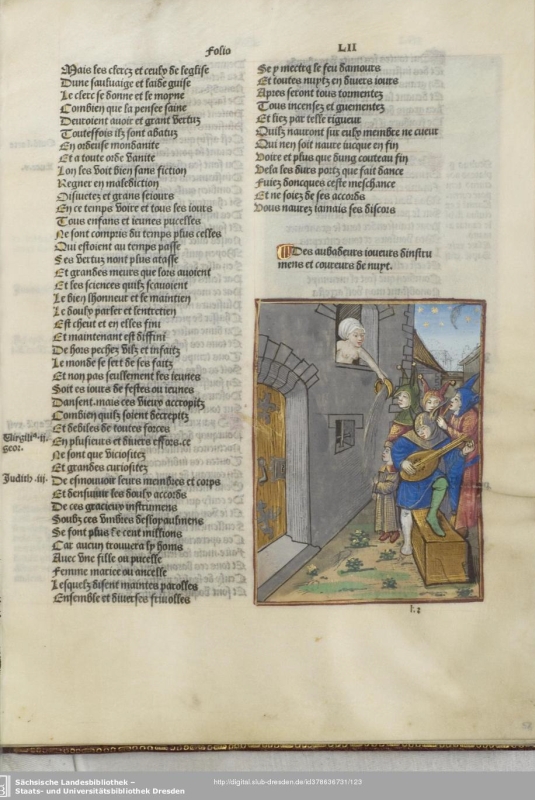 Folio
LII
Mais les clercz et ceulx de leglise
Dune sauluaige et laide guise
Le clerc se donne et le moyne
Combien que la pensee saine
Deuroient auoir et grant vertuz
Toutesfois ilz sont abatuz
En ordeuse mondanite
Et a toute orde vanite
Lon les voit bien sans fiction
Regner en malediction
Oisiuetez et grans seiours
En ce temps voire et tous les iours
Tous enfans et ieunes pucelles
Ne sont compris du temps plus celles
Qui estoient au temps passe
Ses vertuz nont plus atasse
Et grandes meurs que lors auoient
Et les sciences quilz scauoient
Le bien lhonneur et le maintien
Le doulx parler et lentretien
Est cheut et en elles fini
Et maintenant est diffini
De hors pechez vilz et infaitz
Le monde se sert de ses faitz
Et non pas seullement les ieunes
Soit es iours de festes ou ieunes
Dansent. mais ces vieux accropitz
Combien quilz soient decrepitz
Et debiles de toutes forces
Virgili. ii.
geor.
En plusieurs et diuers efforces
Ne sont que viciositez
Et grandes curiositez
Judith .iii.
De esmouuoir leurs membres et corps
Et densuiuir les doulx accords
De ces gracieux instrumens
Soubz ces vmbres desloyaulmens
Se font plus de cent millions
Car aucun trouuera lx homs
Auec vne fille ou pucelle
Femme mariee ou ancelle
Lesquelz disent maintes parolles
Ensemble et diuerses friuolles
Se y mectra le feu damours
Et toutes nuytz en diuers iours
Apres seront tous tormentez
Tous incensez et guementez
Et liez par telle rigueur
Quilz nauront sur eulx membre ne cueur
Qui nen soit naure iucque en fin
Voire et plus que dung couteau fin
Vela les durs portz que fait dance
Fuiez doncques ceste meschance
Et ne soiez de ses accords
Vous naurez iamais ses discors
Des aubadeurs ioueurs dinstru
mens et coureurs de nuyt.
Sächsische Landesbibliothek –
Staats- und Universitätsbibliothek Dresden
http://digital.slub-dresden.de/id378836731/123